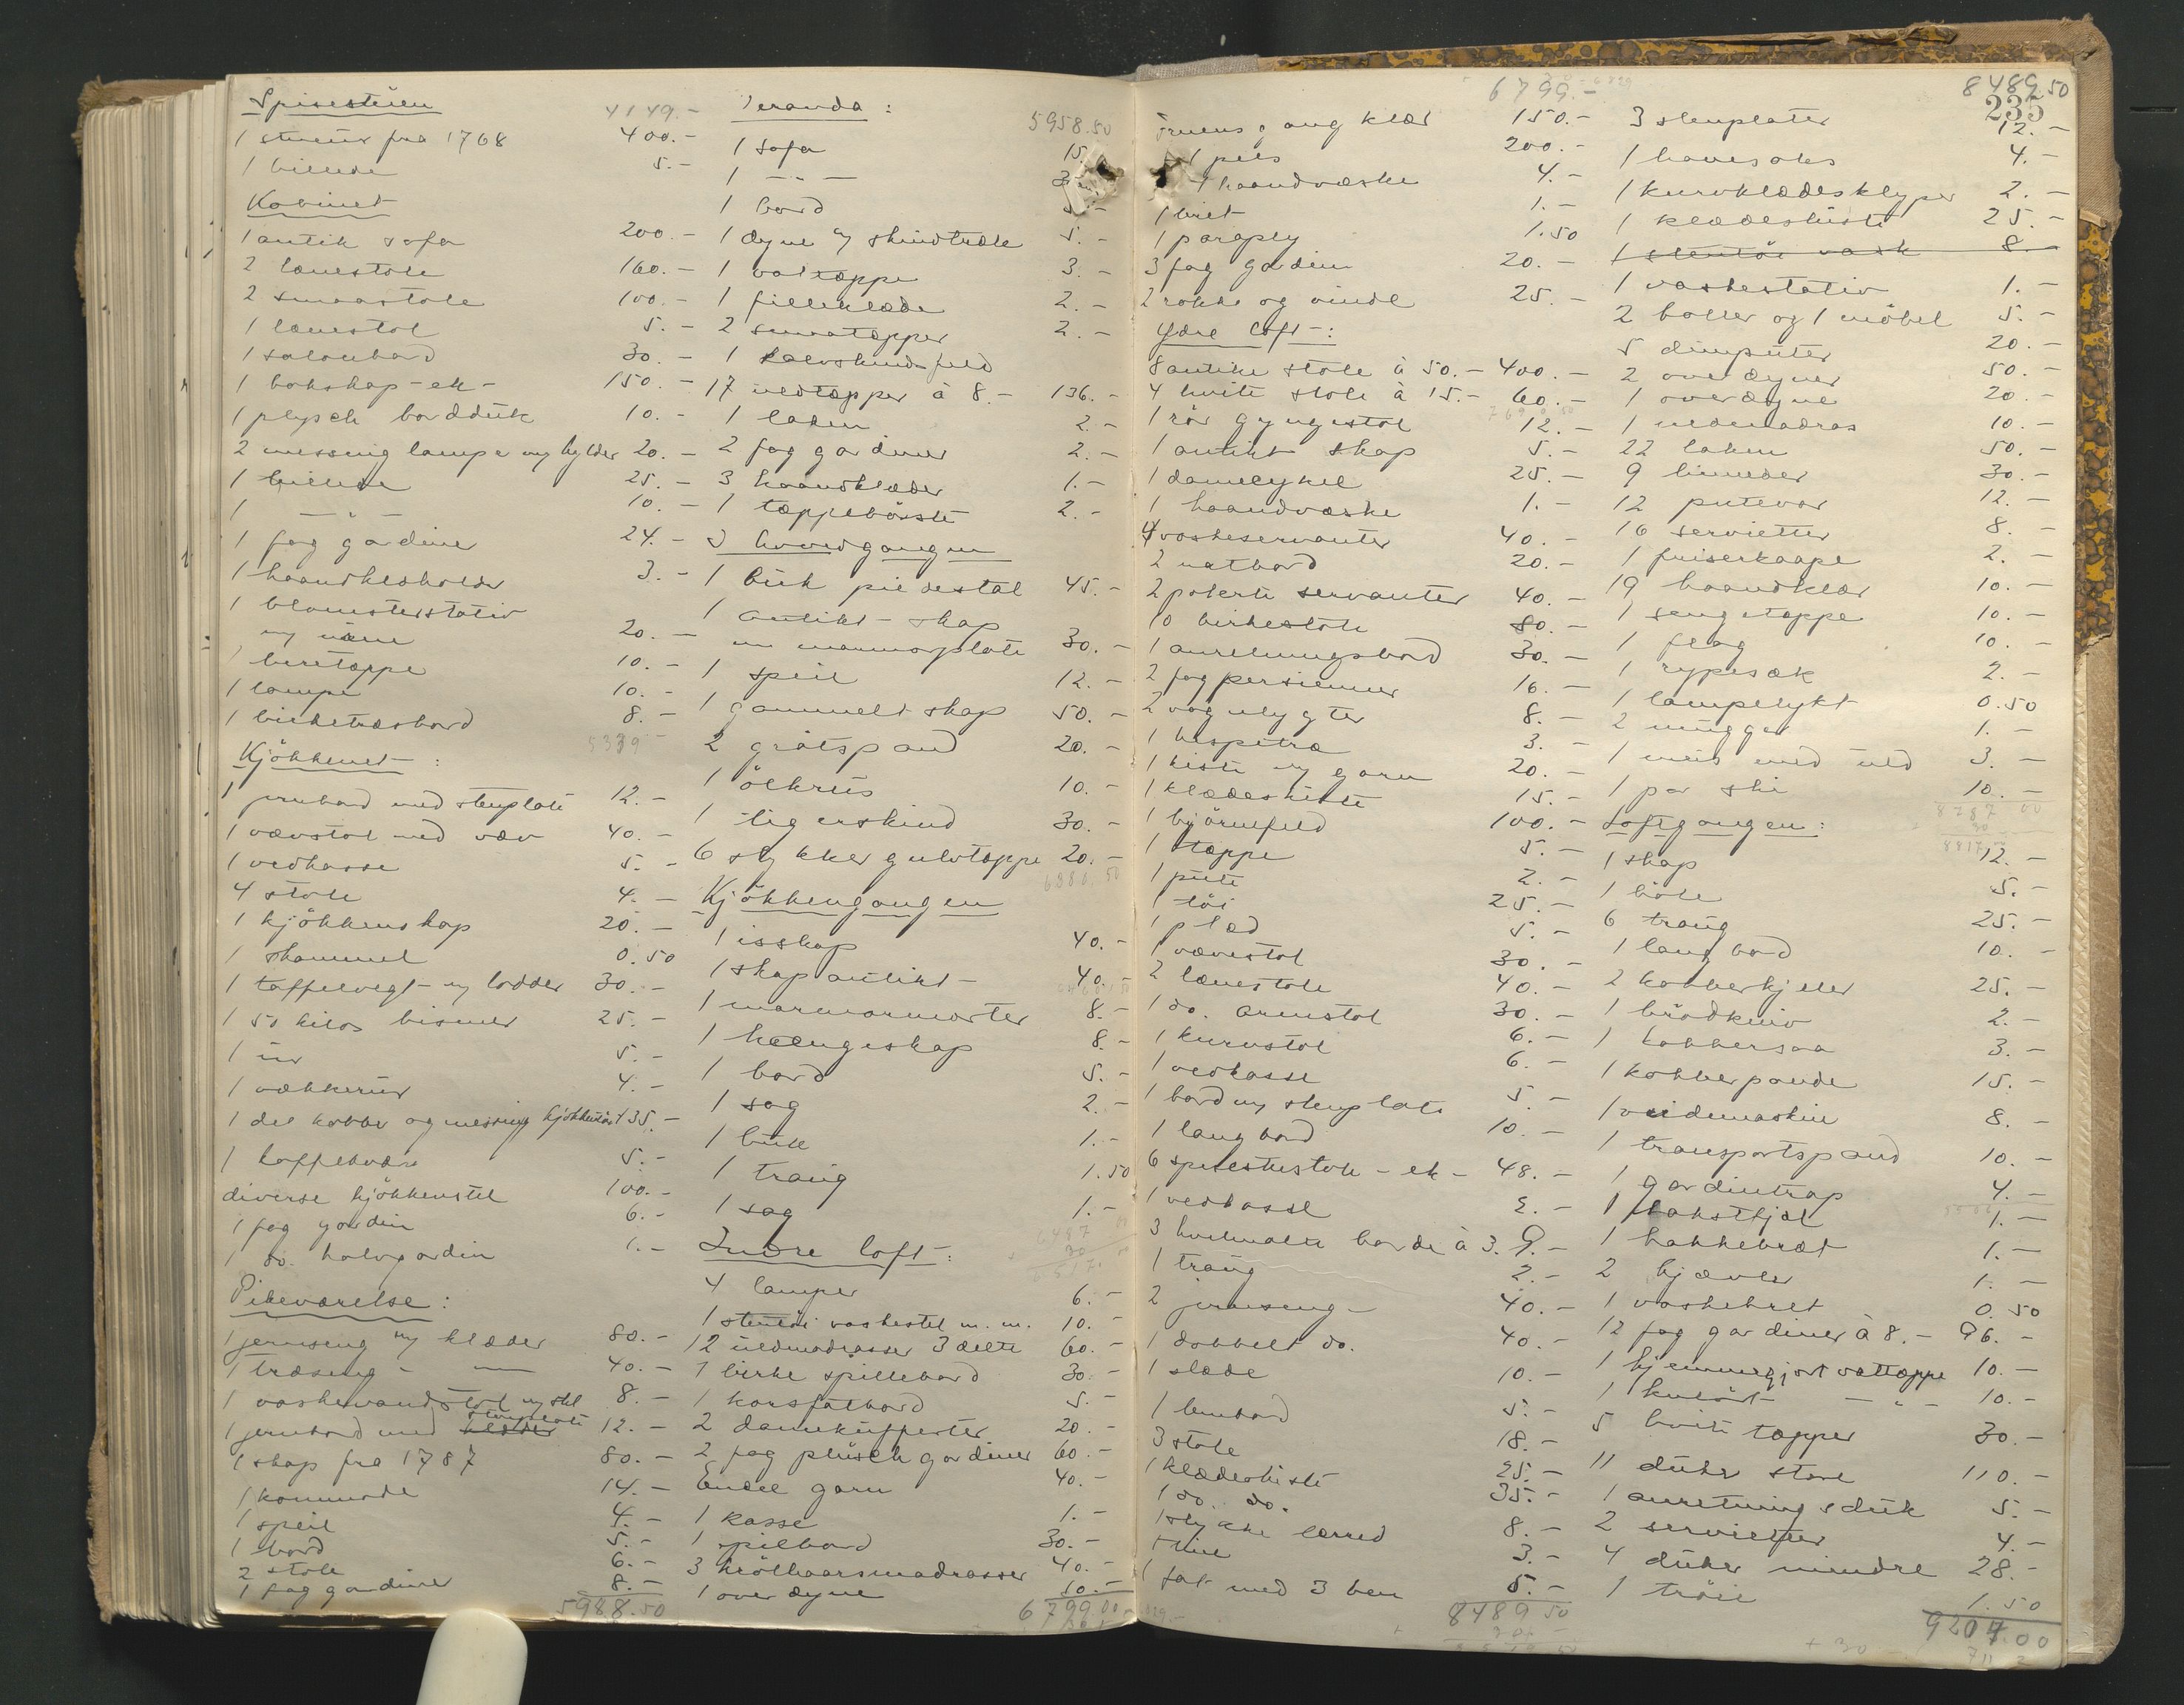 Spisestuen 4149.-
1 stueur fra 1768 400.-
1 billede 5.-
Kabinet
1 antik sofa 200.-
2 lænestole 160.-
2 smaastole 100.-
1 lænestol 5.-
1 salonbord 30.-
1 bokskap - ek - 150.-
1 plysch bordduk 10.-
2 messing lampe m/ hylder 20.-
1 billede 25.-
1 - " - 10.-
1 fag gardiner 24.-
1 haandklædholder 3.-
1 blomsterstativ
m/ 20.-
10.-
1 lampe 10.-
1 birketræsbord 8.-
5339.-
Kjøkkenet:
1 jernbord med stenplate 12.-
1 vævstol med væv 40.-
1 vedkasse 5.-
4 stole 4.-
1 kjøkkenskap 20.-
1 skammel 0.50
1 taffelvegt m/ lodder 30.-
1 50 kilos bismer 25.-
1 ur 5.-
1 vækkerur 4.-
1 del kobber og messing kjøkkentøi 135.-
1 kaffekværn 5.-
diverse kjøkkenstel 100.-
1 fag gardin 6.-
1 do. halvgardin 1.-
Pikeværelse:
1 jernseng m/ klæder 80.-
1 træseng - " - 40.-
1 vaskevandstol m/ stel 8.-
1 jernbord med klæder stenplate 12.-
1 skap fra 1787 80.-
1 kommode 14.-
1 speil 4.-
1 bord 5.-
2 stole 6.-
1 fag gardiner 8.-
5988.50
Veranda: 5958.50
1 sofa 15
1 - " -
1 bord 5.-
1 dyne m/ skindtræk 5.-
1 vattæppe 3.-
1 filleklæde 2.-
2 smaatæpper 2.-
1 kalvskindsfeld
17 uldtæpper à 8.- 136.-
1 laken 2.-
2 fag gardiner 2.-
3 haandklæder 1.-
1 tæppebørste 2.-
I hovedgangen
1 birk piedestal 45.-
1 antikt skap
m marmorplate 30.-
1 speil 12.-
1 gammelt skap 50.-
2 grøtspand 20.-
1 ølkrus 10.-
1 tigerskind 30.-
6 stykker gulvtæppe 20.-
Kjøkkengangen
1 isskap 40.-
1 skap antikt - 40.-
1 marmormorter 8.-
1 hængeskap 8.-
1 bord 5.-
1 sag 2.-
1 1.-
1 traug 1.50
1 sag 1.-
Indre loft:
4 lamper 6.-
1 stentøi vaskestel m. m. 10.-
12 uldmadrasser 3 delte 60.-
1 birke spillebord 30.-
1 korsfatbord 5.-
2 damekufferter 20.-
2 fag plüsch gardiner 60.-
Endel garn 40.-
1 kasse 1.-
1 spilbord 30.-
3 krølhaarsmadrasser 40.-
1 overdyne 10.-
6799.00
6799.-
Fruens gang klær 150.-
1 pels 200.-
1 haandvæske 4.-
1 1.-
1 paraply 1.50
3 fag gardin 20.-
2 rokke og vinde 25.-
Ydre loft:
8 antike stole à 50.- 400.-
4 hvite stole à 15.- 60.-
1 rør gyngestol 12.-
1 antikt skap 5.-
1 damecykel 25.-
1 haandvæske 1.-
4 vaskeservanter 40.-
2 natbord 20.-
2 polerte servanter 40.-
10 birkestole 80.-
1 anretningsbord 30.-
2 fag persienner 16.-
2 vognlygter 8.-
1 hespetræ 3.-
1 kiste m/ garn 20.-
1 klædeskiste 15.-
1 bjørnefeld 100.-
1 tæppe 5.-
1 pute 2.-
1 tøi 25.-
1 plæd 5.-
1 vævestol 30.-
2 lænestole 40.-
1 do. armstol 30.-
1 kurvstol 6.-
1 vedkasse 6.-
1 bord m/ stenplate 5.-
1 langbord 10.-
6 spisestuestole - ek - 48.-
1 vedkasse 2.-
3 hvitmalte borde à 3. 9.-
1 traug 2.-
2 jernseng - 40.-
1 dobbelt do. 40.-
1 slæde 10.-
1 lembord 5.-
3 stole 18.-
1 klædeskiste 25.-
1 do. do. 35.-
1 stykke lærred 8.-
1 tine 3.-
1 fat med 3 ben 5.-
8489.50
8489.50
235
3 stenplater 12.-
1 havesaks 4.-
1 kurv klædesklyper 2.-
1 klædeskiste 25.-
1 stentøi vask 8.-
1 vaskestativ 1.-
2 boller og 1 møbel 5.-
5 dunputer 20.-
2 overdyner 50.-
1 overdyne 20.-
1 uldmadras 10.-
22 laken 50.-
9 30.-
12 putevar 12.-
16 servietter 8.-
1 friserkaape 2.-
19 haandklær 10.-
1 sengetæppe 10.-
1 flag 10.-
1 rypesæk 2.-
1 lampelykt 0.50
2 mugger 1.-
1 meis med uld 3.-
1 par ski 10.-
8787 00
Loftgangen:
1 skap 12.-
1 5.-
6 traug 25.-
1 langbord 10.-
2 kobberkjeler 25.-
1 brødkniv 2.-
1 kobbersaa 3.-
1 kobberpande 15.-
1 vridemaskin 8.-
1 transportspand 10.-
1 gardintrap 4.-
1 bakstfjøl 1.-
1 hakkebræt 1.-
2 kjævler 1.-
1 vaskebret 0.50
12 fag gardiner à 8.- 96.-
1 hjemmegjort vattæppe 10.-
1 kulørt - " - 10.-
5 hvite tæpper 30.-
11 duker store 110.-
1 anretningsduk 5.-
2 servietter 4.-
4 duker mindre 28.-
1 trøie 1.50
9204.00